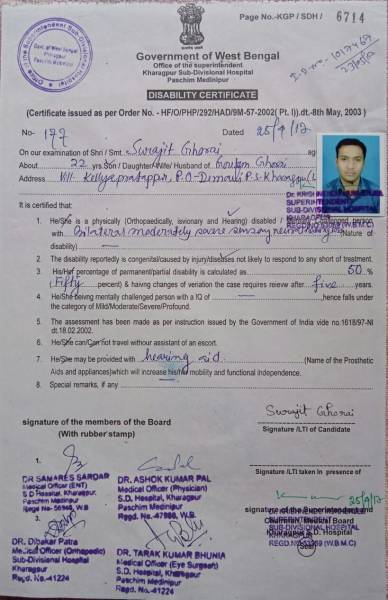 Page No.-KGP / SDH / 6714
Govt. of West Bengal
Kharagpur
Paschim Medinipur
Government of West Bengal
Office of the superintendent
Kharagpur Sub-Divisional Hospital
Paschim Medinipur
DISABILITY CERTIFICATE
(Certificate issued as per Order No. - HF/O/PHP/292/HAD/9M-57-2002( Pt. I).dt.-8th May, 2003 )
No- 177 Dated 25/9/12
On our examination of Shri / Smt. Surajit Ghorai
About 22 yrs Son / Daughter/Wife/ Husband of Goutam Ghorai
Address Vill- P.O- P.S-
It is certified that:
1. He/She is a physically (Orthopaedically, isvionary and Hearing) disabled / person
with Bilateral moderately severe sensory (Nature of
disability)
2. The disability reportedly is congenital/caused by injury/disease not likely to respond to any short of treatment.
3. His/Her percentage of permanent/partial disability is calculated as 50 %
(Fifty percent) & having changes of veriation the case requires reieve after five years.
4. He/She being mentally challenged person with a IQ of hence falls under
the category of Mild/Moderate/Severe/Profound.
5. The assessment has been made as per instruction issued by the Government of India vide no.1618/97-NI
dt.18.02.2002.
6. He/She can/Can not travel without assistant of an escort.
7. He/She may be provided with hearing aid (Name of the Prosthetic
Aids and appliances)which will increase his/her mobility and functional independence.
8. Special remarks, if any
Surajit Ghorai
signature of the members of the Board
(With rubber stamp)
Signature /LTI of Candidate
Signature /LTI taken in presence of
1.
DR SAMARES SARDAR
Medical Officer (ENT)
S.D. Hospital, Kharagpur,
Paschim Medinipur
Regd No- 56946, W.B
DR. ASHOK KUMAR PAL
Medical Officer (Physician)
S.D. Hospital, Kharagpur,
Paschim Medinipur
Regd. No.-47988, W.B.
25/9/12
signature of the Superintendent and
Board
Kharagpur S.D. Hospital
Seal
3.
DR. Dibakar Patra
Medical Officer (Orthopedic)
Sub-Divisional Hospital
Kharagpur
Regd. No.-41224
DR. TARAK KUMAR BHUNIA
Medical Officer (Eye Surgeon)
S.D. Hospital, Kharagpur,
Paschim Medinipur
Regd. No-41226